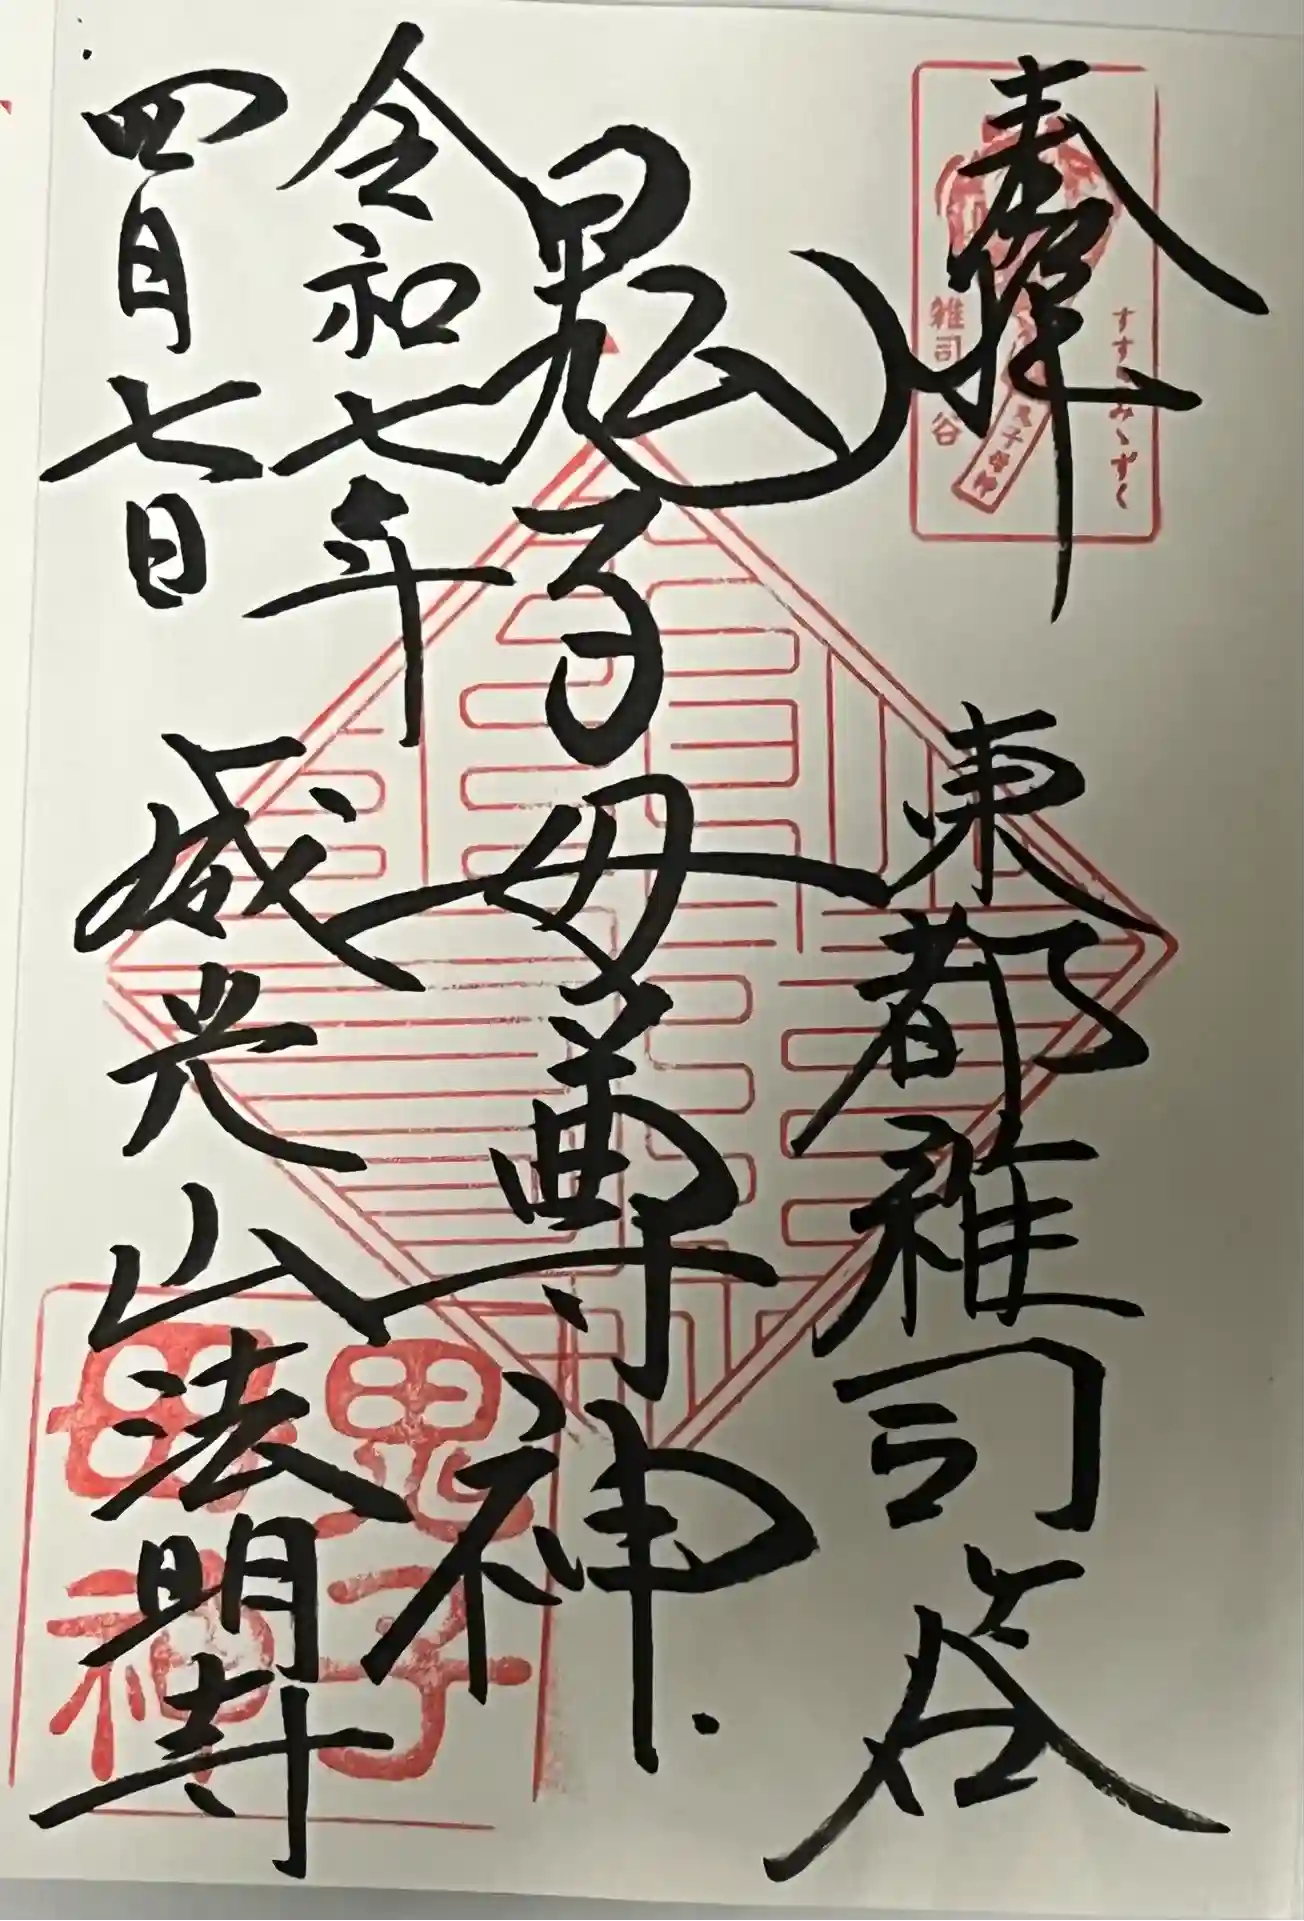 奉拝
東都雑司谷
鬼子母尊神
令和七年
四月七日
威光山法明寺
すすきみゝずく
雑司谷
鬼子母神
鬼子母神